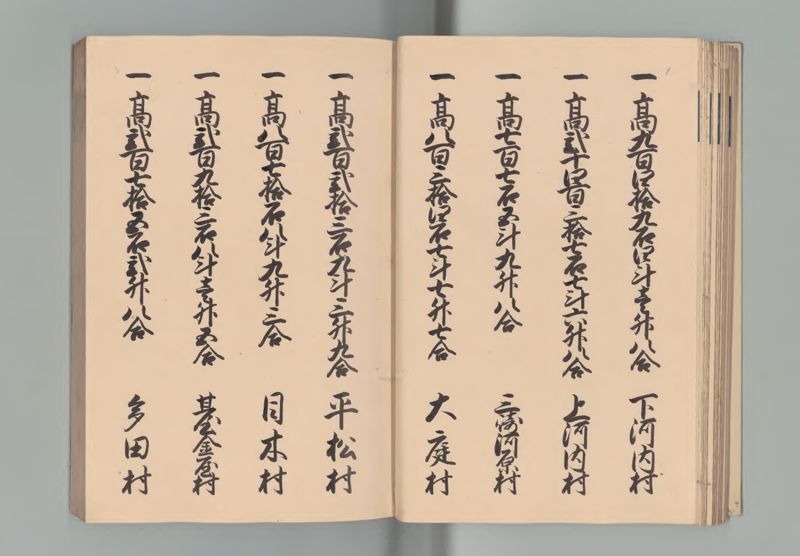 一 高九百四拾九石四斗壱升八合 下河内村
一 高弐千四百三拾七石七斗六升八合 上河内村
一 高七百七石五斗九升八合 三崎河原村
一 高八百三拾四石七斗七升七合 大庭村
一 高弐百弐拾三石九斗三升九合 平松村
一 高八百七拾石八斗九升三合 目木村
一 高弐百九拾三石八斗壱升五合 基金屋村
一 高弐百七拾五石弐升八合 多田村